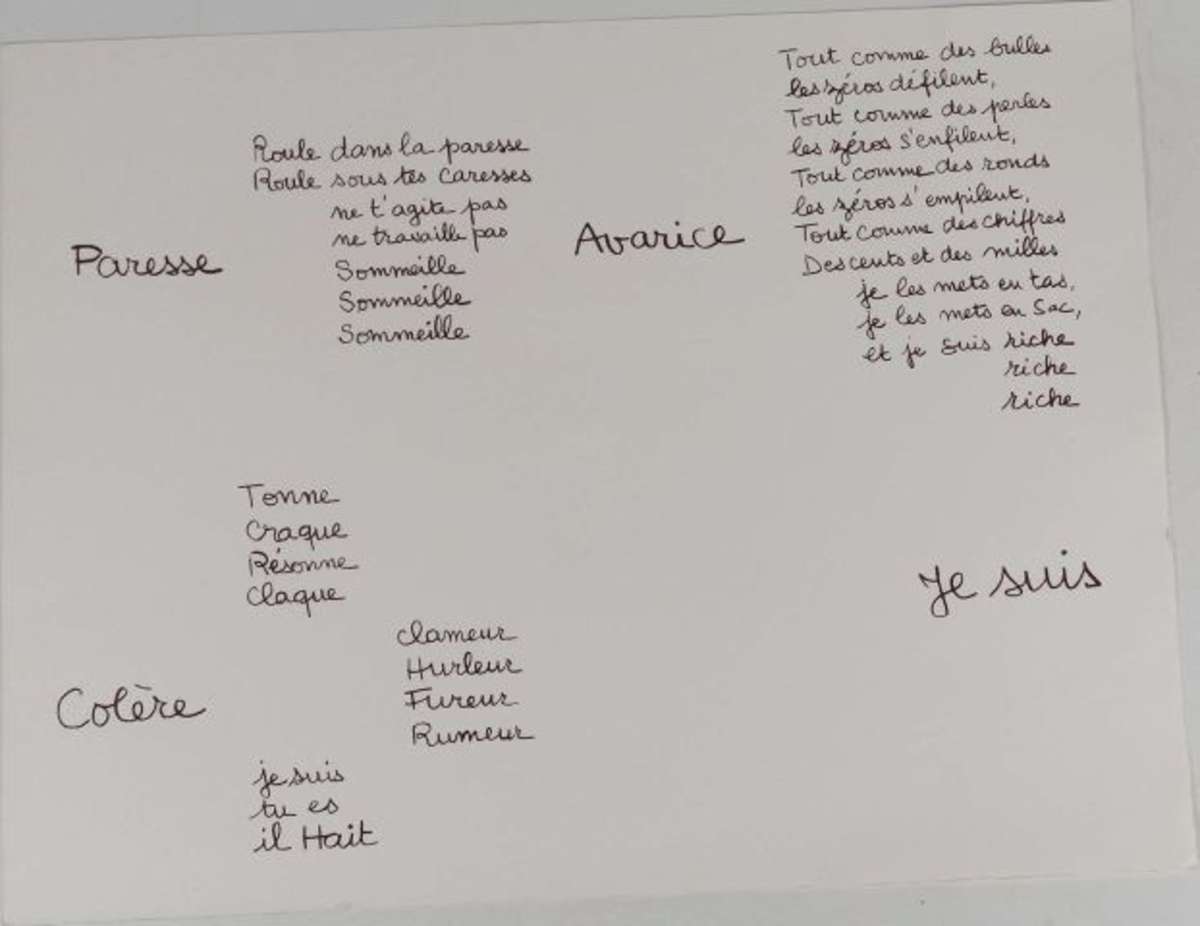 Paresse
Roule dans la paresse
Roule sous tes caresses
ne t'agite pas
ne travaille pas
Sommeille
Sommeille
Sommeille
Avarice
Tout comme des bulles
les zéros défilent,
Tout comme des perles
les zéros s'enfilent,
Tout comme des ronds
les zéros s'empilent,
Tout comme des chiffres
Des cents et des milles
je les mets en tas,
je les mets en Sac,
et je suis riche
riche
riche
Colère
Tonne
Craque
Résonne
Claque
clameur
Hurleur
Fureur
Rumeur
je suis
tu es
il Hait
Je suis